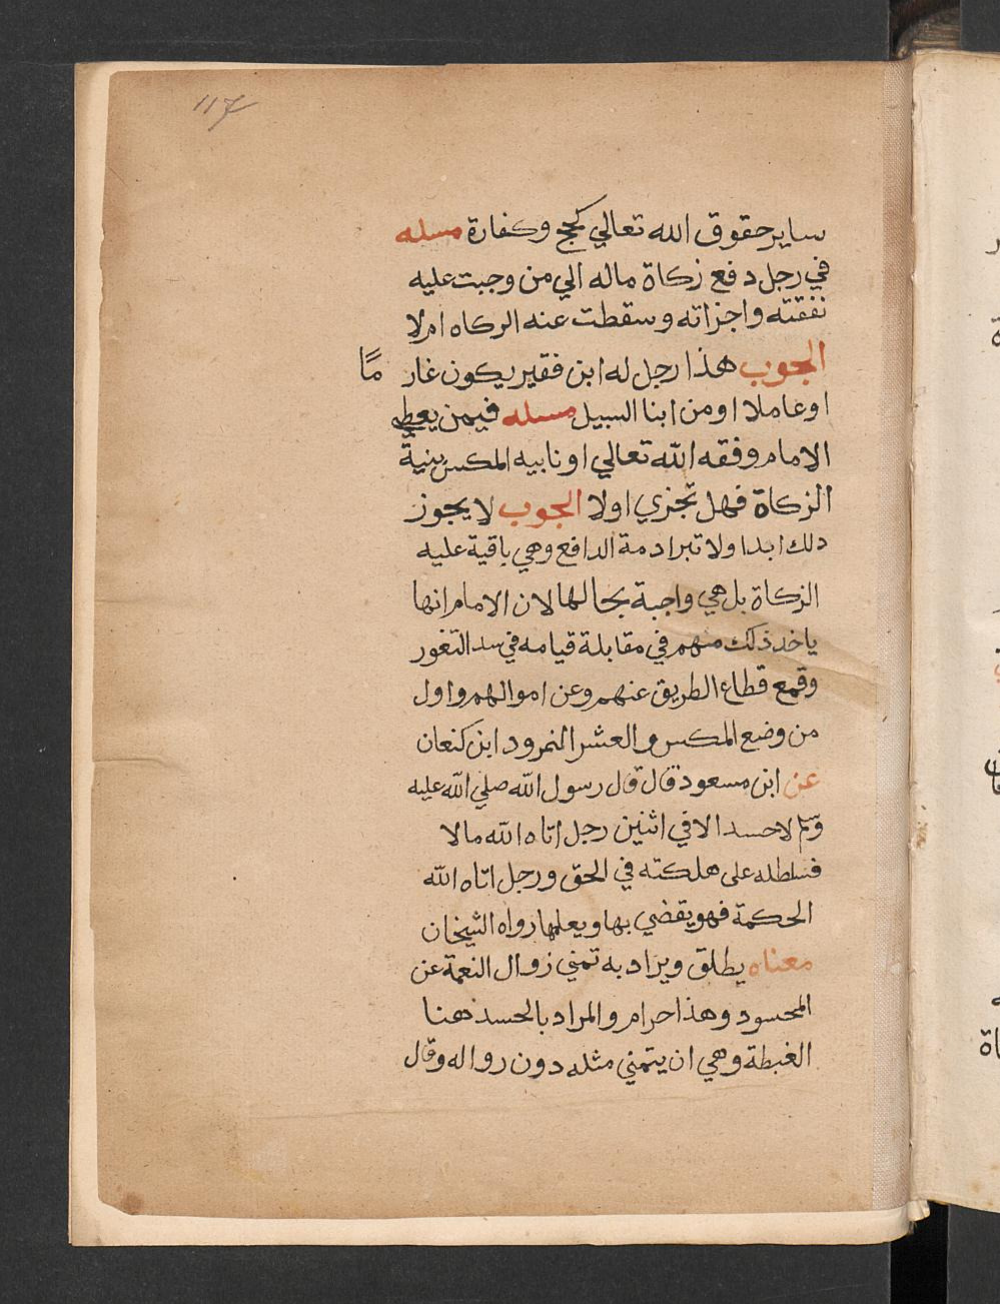 117
ساير حقوق الله تعالي كحج وكفارة مسله
في رجل دفع زكاة ماله الي من وجبت عليه
نفقته واجزاته وسقطت عنه الركاه ام لا
الجوب هذا رجل له ابن فقير يكون غار ما
او عاملا او من ابنا السبيل مسله فيمن يعطي
الامام وفقه الله تعالي او نابيه المكس بنية
الزكاة فهل تجزي اولا الجوب لا يجوز
دلك ابدا ولا تبرا دمة الدافع وهي باقية عليه
الزكاة بل هي واجبة بحالها لان الامام انها
ياخد ذلك منهم في مقابلة قيامه في سد التغور
وقمع قطاع الطريق عنهم وعن اموالهم واول
من وضع المكس والعشر النمرود ابن كنعان
عن ابن مسعود قال قال رسول الله صلي الله عليه
وسلم لاحسد الا في اثنين رجل اتاه الله مالا
فسلطله على هلكته في الحق ورجل اتاه الله
الحكمة فهو يقضي بها ويعلمها رواه الشيخان
معناه يطلق ويراد به تمني زوال النعمة عن
المحسود وهذا حرام والمراد بالحسد هنا
الغبطة وهي ان يتمني مثله دون رواله وقال